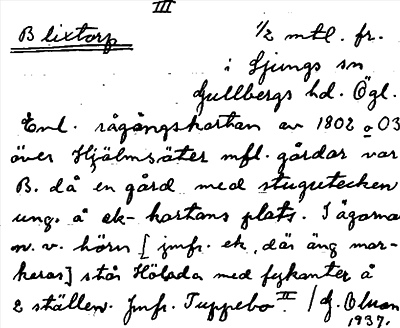 III
Blixtorp 1/2 mtl. fr.
i Ljungs sn
Gullbergs hd. Ögl.
Enl. rågångskartan av 1802 o 03
över Hjälmsäter mfl. gårdar var
B. då en gård med stugutecken
ung. å ek-kartans plats. I ägorna
n. v. hörn [jmfr. ek, där äng mar-
keras] står Hölada med fyrkanter å
2 ställen. Jmfr. Tuppebo II. / G. Olson
1937.